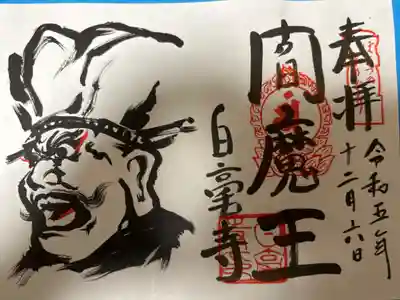 奉拝
令和五年
十二月六日
閻魔王
白高寺